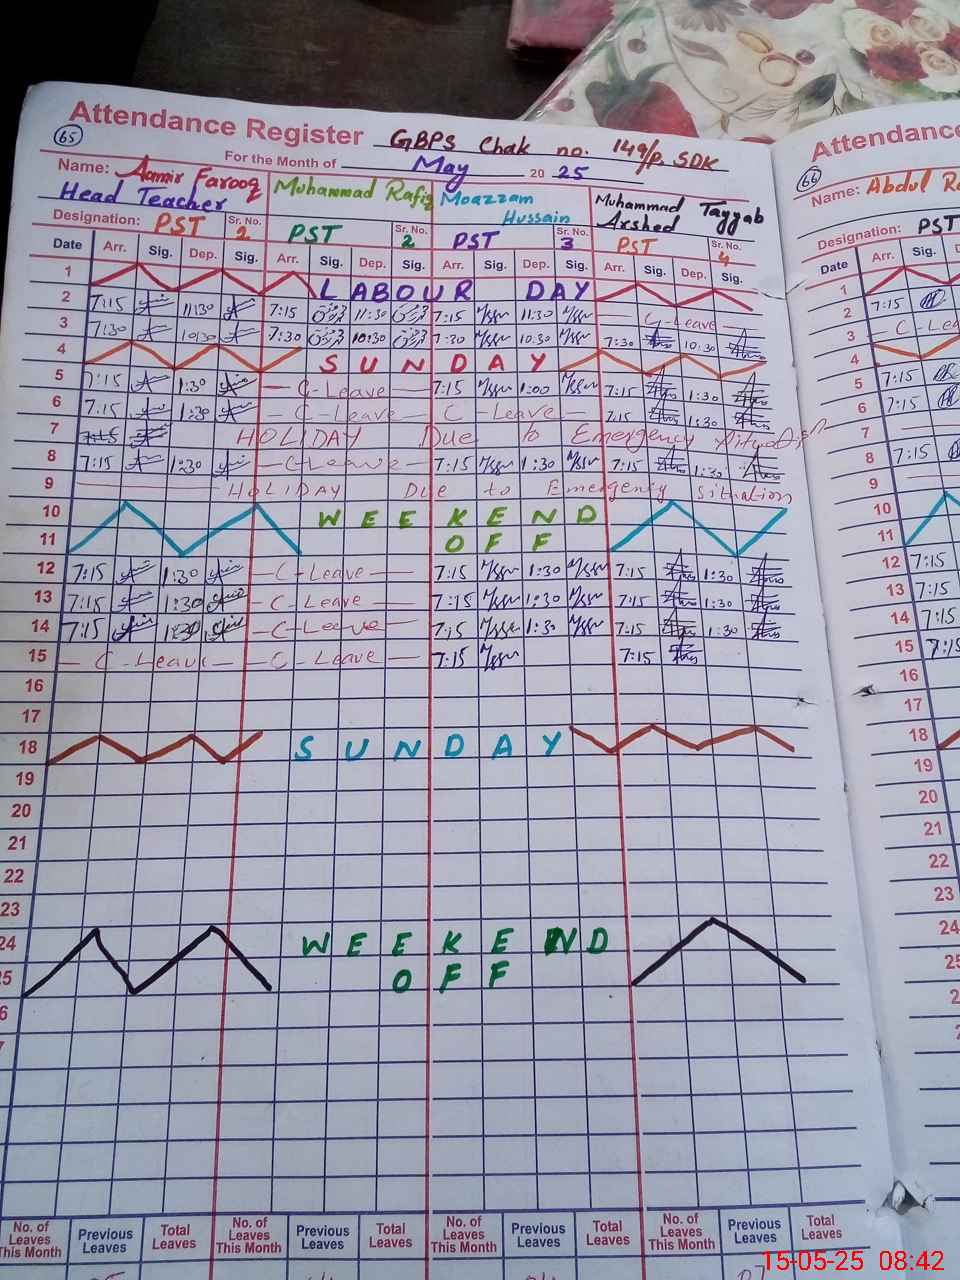 Attendance Register GBPS Chak no. 149/P. SDK
65
For the Month of May 20 25
Name: Aamir Farooq Muhammad Rafiq Moazzam Muhammad Tayyab
Head Teacher Hussain Arshed
Designation: PST Sr. No. 2 PST Sr. No. 2 PST Sr. No. 3 PST Sr. No. 4
Date Arr. Sig. Dep. Sig. Arr. Sig. Dep. Sig. Arr. Sig. Dep. Sig. Arr. Sig. Dep. Sig.
1 LABOUR DAY
2 7:15 11:30 7:15 11:30 7:15 11:30 C-Leave
3 7:30 10:30 7:30 10:30 7:30 10:30 7:30 10:30
4 SUNDAY
5 7:15 1:30 C-Leave 7:15 1:00 7:15 1:30
6 7:15 1:30 C-Leave C-Leave 7:15 1:30
7 7:15 HOLIDAY Due to Emergency Situation
8 7:15 1:30 C-Leave 7:15 1:30 7:15 1:30
9 HOLIDAY Due to Emergency situation
10 WEEKEND
11 OFF
12 7:15 1:30 C-Leave 7:15 1:30 7:15 1:30
13 7:15 1:30 C-Leave 7:15 1:30 7:15 1:30
14 7:15 1:30 C-Leave 7:15 1:30 7:15 1:30
15 C-Leave C-Leave 7:15 7:15
16
17
18 SUNDAY
19
20
21
22
23
24 WEEKEND
25 OFF
6
No. of Leaves This Month Previous Leaves Total Leaves No. of Leaves This Month Previous Leaves Total Leaves No. of Leaves This Month Previous Leaves Total Leaves No. of Leaves This Month Previous Leaves Total Leaves
Attendance
66
Name: Abdul
Designation: PST
Date Arr.
1
2 7:15
3 C-Lea
4
5 7:15
6 7:15
7
8 7:15
9
10
11
12 7:15
13 7:15
14 7:15
15 7:15
16
17
18
19
20
21
22
23
24
25
15-05-25 08:42